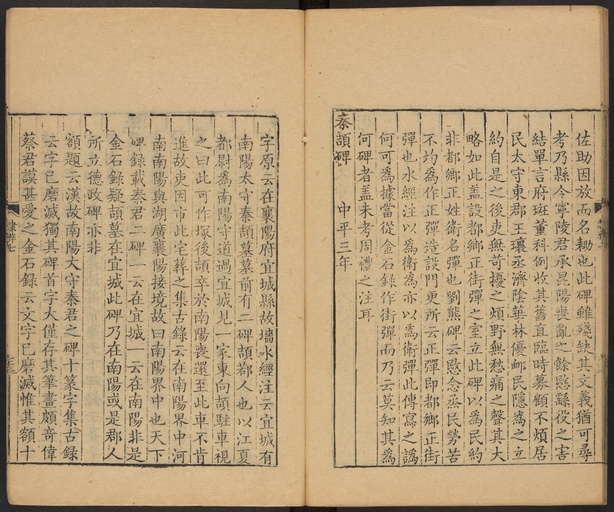 佐助因放而名耡也此碑雖殘缺其文義猶可尋
考乃縣令寧陵君承昆陽喪亂之餘愍繇役之害
結單言府斑董科例收其舊直臨時募顧不煩居
民太守東郡王瓌丞濟陰華林優邮民隱為之立
約自是之後吏無苛擾之煩野無愁痛之聲其大
略如此盖設都鄉正街彈之室立此碑以為民約
非都鄉正姓衛名彈也劉熊碑云愍念烝民勞苦
不均為作正彈造設門更所云正彈即都鄉正街
彈也水經注以為衛為亦以為衛彈此傳寫之譌
何可為據當從金石錄作街彈而乃云莫知其為
何碑者盖未考周禮之注耳
秦頡碑　中平三年
字原云在襄陽府宜城縣故墻水經注云宜城有
南陽太守秦頡墓墓前有二碑頡鄀人也以江夏
都尉為南陽守道過宜城見一家東向頡駐車視
之曰此可作塚後頡卒於南陽喪還至此車不肯
進故吏因市此宅葬之集古錄云在南陽界中河
南南陽與湖廣襄陽接境故曰南陽界中也天下
碑錄載秦君二碑一云在宜城一云在南陽非是
金石錄疑頡墓在宜城此碑乃在南陽或是郡人
所立德政碑亦非
額題云漢故南陽太守秦君之碑十篆字集古錄
云字已磨滅獨其碑首字大僅存其筆畫頗奇偉
蔡君謨甚愛之金石錄云文字已磨滅惟其額十